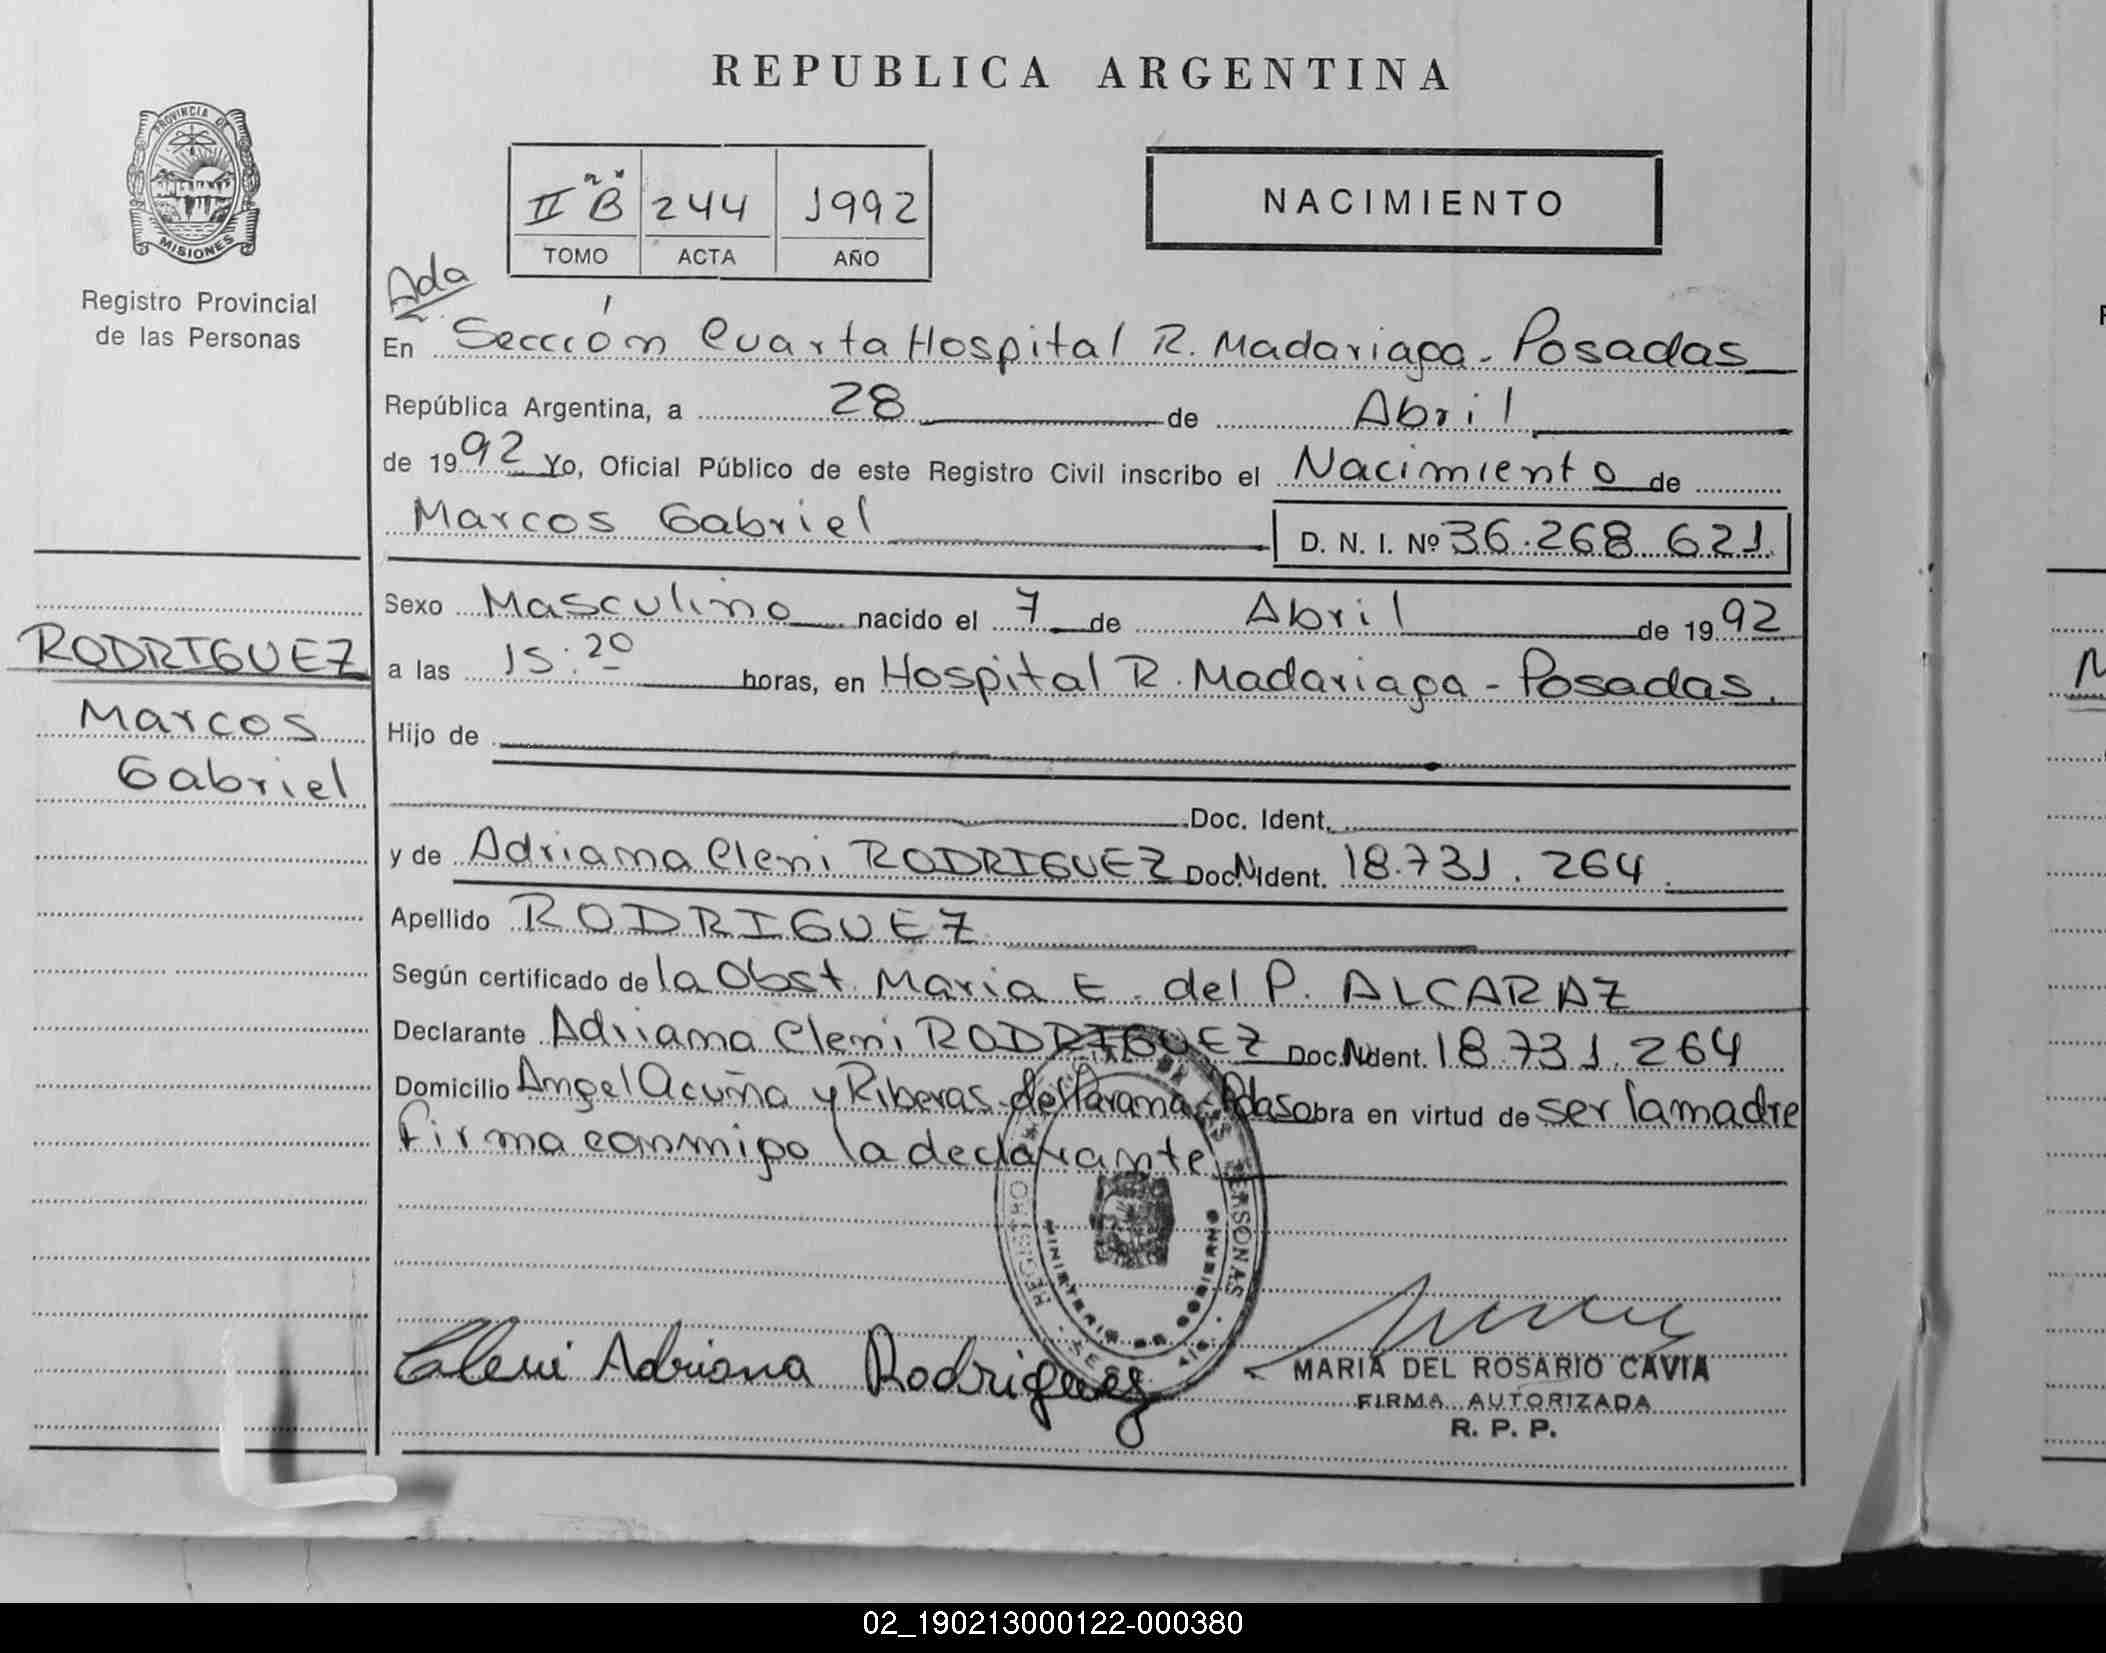 REPUBLICA ARGENTINA
PROVINCIA DE MISIONES
Registro Provincial
de las Personas
II "B" 244 1992
TOMO ACTA AÑO
NACIMIENTO
Ada
En Sección Cuarta Hospital R. Madariaga - Posadas
República Argentina, a 28 de Abril
de 1992 Yo, Oficial Público de este Registro Civil inscribo el Nacimiento de
Marcos Gabriel D. N. I. Nº 36.268.621
Sexo Masculino nacido el 7 de Abril de 1992
a las 15:20 horas, en Hospital R. Madariaga - Posadas.
Hijo de
Doc. Ident.
y de Adriana Cleni RODRIGUEZ Doc. N. Ident. 18.731.264.
Apellido RODRIGUEZ
Según certificado de la Obst. Maria E. del P. ALCARAZ
Declarante Adriana Cleni RODRIGUEZ Doc. N. Ident. 18.731.264
Domicilio Angel Acuña y Riberas del Parana - Pdas obra en virtud de ser la madre
firma conmigo la declarante
RODRIGUEZ
Marcos
Gabriel
REGISTRO DE LAS PERSONAS
MINISTERIO DE GOBIERNO
Cleni Adriana Rodriguez
MARIA DEL ROSARIO CAVIA
FIRMA AUTORIZADA
R. P. P.
02_190213000122-000380